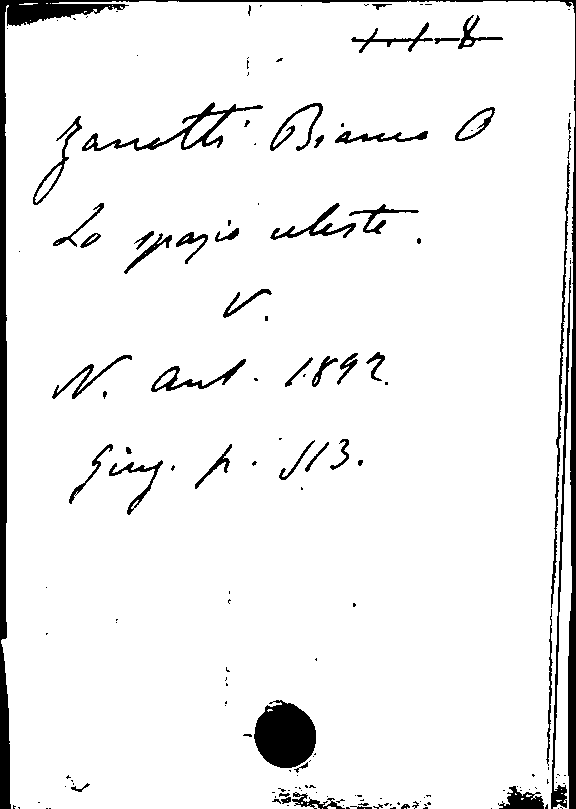 1.1.8
Zanotti Bianco O
Lo spazio celeste.
V.
N. Ant. 1892.
Giug. p. 513.